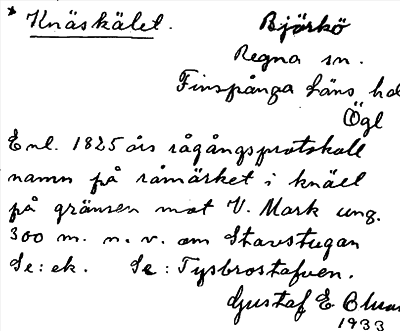 * Knäskälet. Björkö
Regna sn.
Finspånga läns hd
Ögl
Enl. 1825 års rågångsprotokoll
namn på råmärket i knäet
på gränsen mot V. Mark ung.
300 m. n. v. om Stavstugan
Se: ek. Se: Tysbrostafven.
Gustaf E
1933